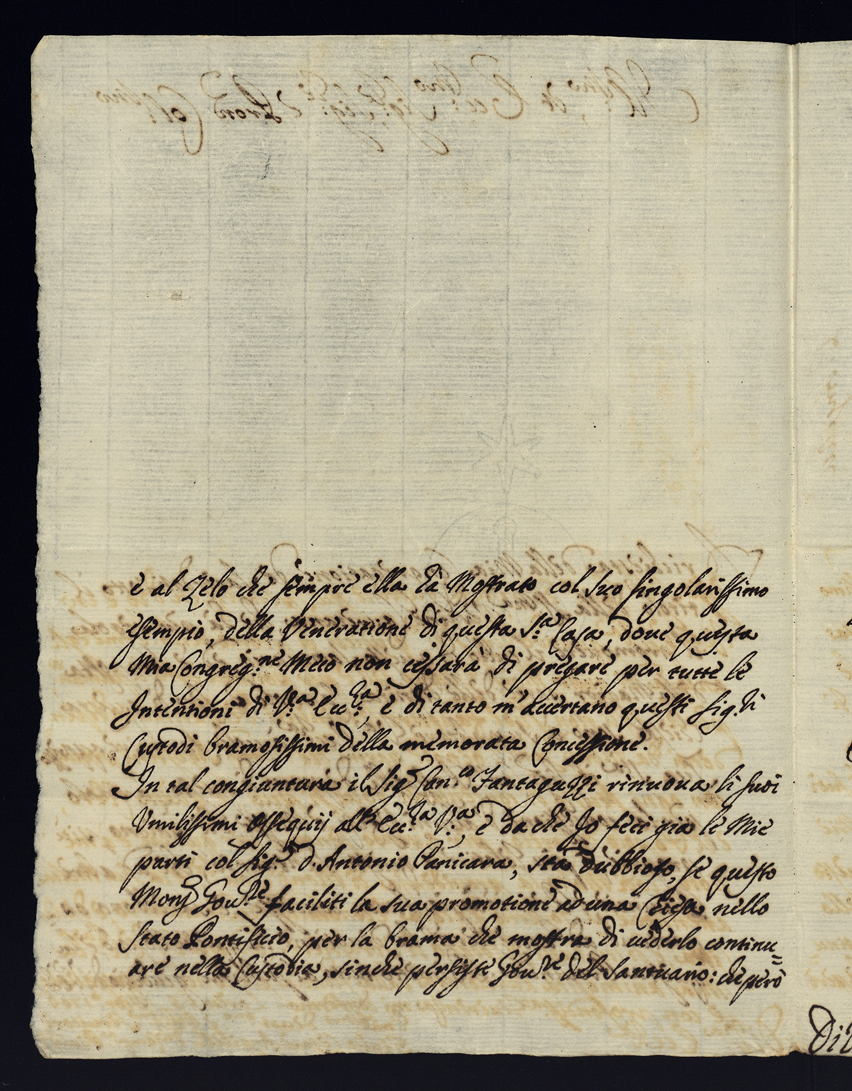 e al Zelo che sempre ella hà Mostrato col suo singolarissimo
esempio, della Veneratione di questa S.ta Casa, doue questa
Mia Congreg.ne Meco non cessarà di pregare per tutte le
Intentioni di V.a Ecc.za, e di tanto m'auertano questi Sig.ri
Custodi bramosissimi della memorata Concessione.
In tal congiuntura il Sig.r Can.co Fantaguzzi rinuoua li suoi
Vmilissimi Ossequij all' Ecc.za V.a, e da che Io feci gia le Mie
parti col Sig.r D. Antonio Panicara, sta dubbioso, se questo
Mons.r Gou.re faciliti la sua promotione ad una Chiesa nello
Stato Pontificio, per la brama che mostra di uederlo continu=
are nella Custodia, sinche persiste Gou.re del Santuario: che però